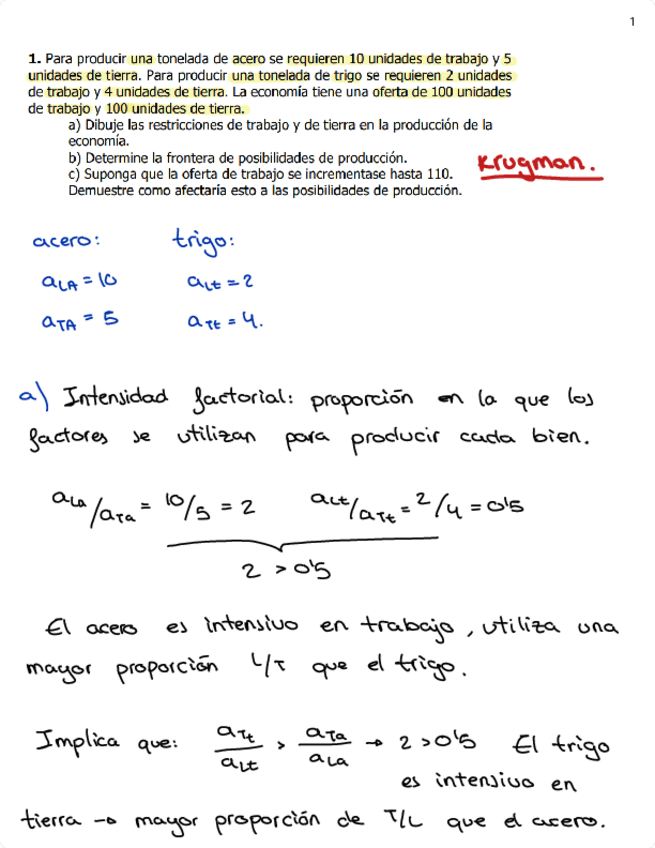 1
1. Para producir una tonelada de acero se requieren 10 unidades de trabajo y 5
unidades de tierra. Para producir una tonelada de trigo se requieren 2 unidades
de trabajo y 4 unidades de tierra. La economía tiene una oferta de 100 unidades
de trabajo y 100 unidades de tierra.
a) Dibuje las restricciones de trabajo y de tierra en la producción de la
economía.
b) Determine la frontera de posibilidades de producción.
c) Suponga que la oferta de trabajo se incrementase hasta 110.
Demuestre como afectaría esto a las posibilidades de producción.
Krugman.
acero: trigo:
aLA = 10 aLt = 2
aTA = 5 aTt = 4.
a) Intensidad factorial: proporción en la que los
factores se utilizan para producir cada bien.
aLa/aTa = 10/5 = 2 aLt/aTt = 2/4 = 0'5
2 > 0'5
El acero es intensivo en trabajo, utiliza una
mayor proporción L/T que el trigo.
Implica que: aTt/aLt > aTa/aLA → 2 > 0'5 El trigo
es intensivo en
tierra → mayor proporción de T/L que el acero.